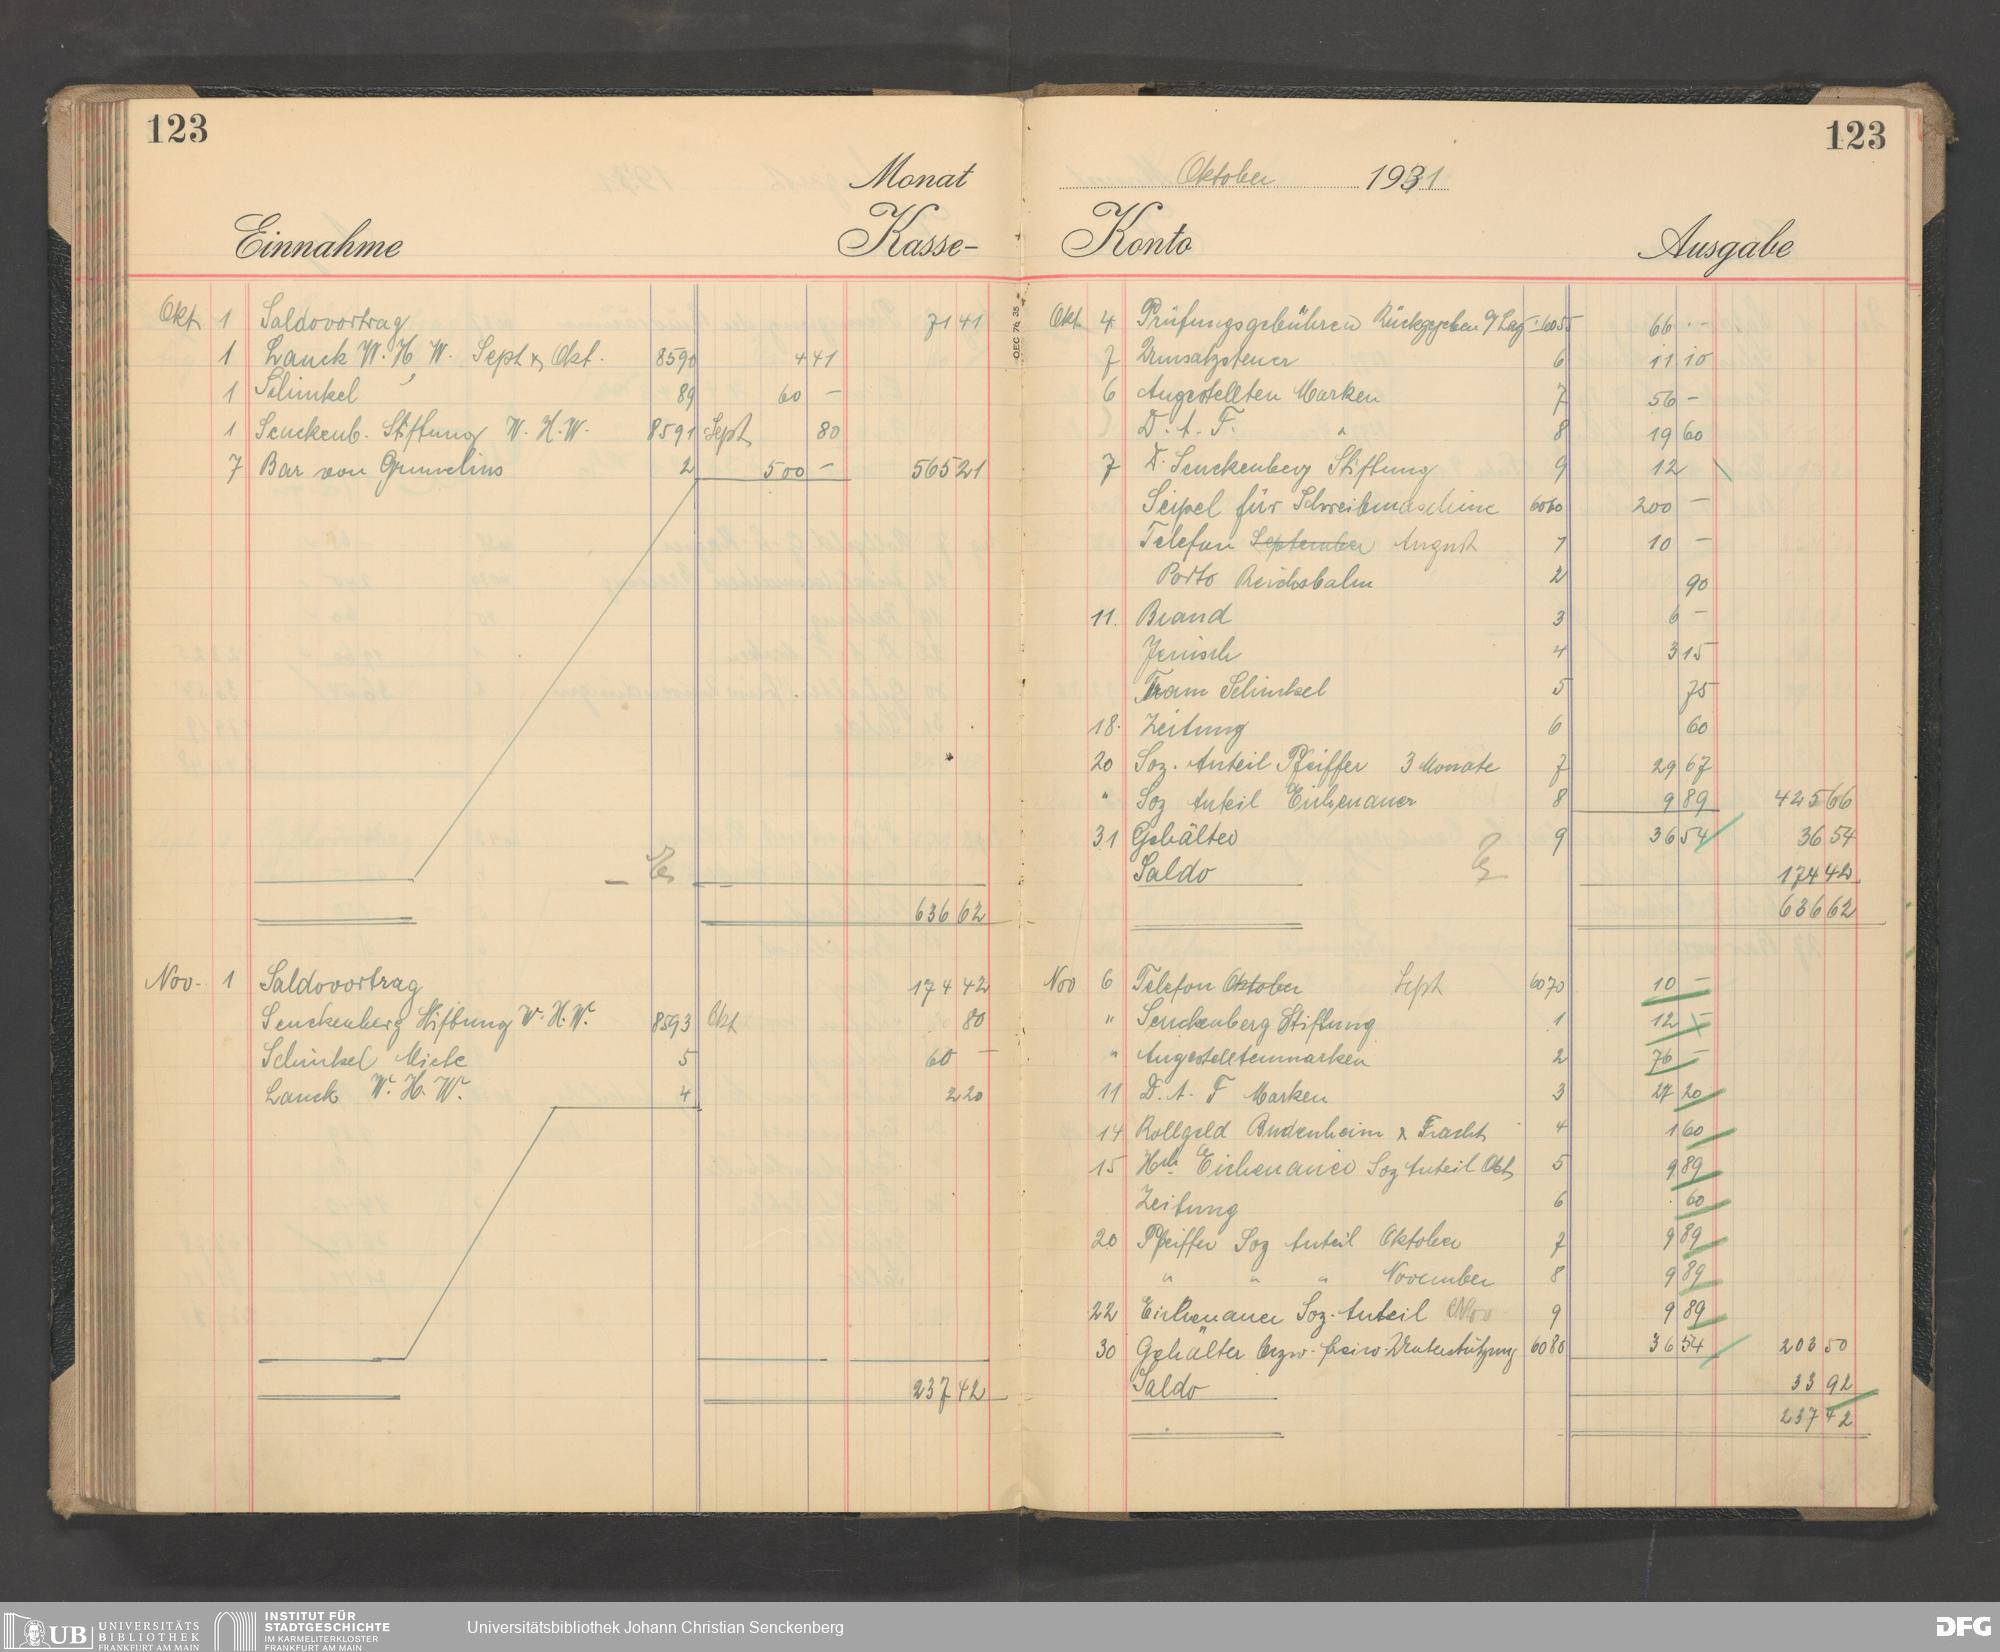 123
Monat
Einnahme Kasse-
Okt. 1 Saldovortrag 71 41
1 Lanck W. H. W. Sept & Okt. 8590 4 41
1 Schinkel 89 60 —
1 Senckenb. Stiftung W. H. W. 8591 Sept 80
7 Bar von 2 500 — 565 21
636 62
Nov. 1 Saldovortrag 174 42
Senckenberg Stiftung W. H. W. 8593 Okt 80
Schinkel Miete 5 60 —
Lanck W. H. W. 4 2 20
237 42
123
Oktober 1931
Konto Ausgabe
Okt. 4 Prüfungsgebühren Rückgegeben 6055 66 —
7 Umsatzsteuer 6 11 10
6 Angestellten Marken 7 56 —
D. A. F. " 8 19 60
7 D. Senckenberg Stiftung 9 12
Seipel für Schreibmaschine 6060 200 —
Telefon September August 1 10 —
Porto Reichsbahn 2 90
11. Brand 3 6 —
Jenisch 4 3 15
Tram Schinkel 5 75
18. Zeitung 6 60
20 Soz. Anteil Pfeiffer 3 Monate 7 29 67
" Soz Anteil Eichenauer 8 9 89 425 66
31 Gehälter 9 36 54 36 54
Saldo 174 42
636 62
Nov 6 Telefon Oktober Sept 6070 10 —
" Senckenberg Stiftung 1 12 —
" Angestelltenmarken 2 76 —
11 D. A. F Marken 3 27 20
14 Rollgeld Budenheim & Fracht 4 1 60
15 Eichenauer Soz Anteil Okt 5 9 89
Zeitung 6 60
20 Pfeiffer Soz Anteil Oktober 7 9 89
" " " November 8 9 89
22 Eichenauer Soz. Anteil Nov 9 9 89
30 Gehälter bezw. freiw. Unterstützung 6080 36 54 203 50
Saldo 33 92
237 42
OEC 76 35
UB UNIVERSITÄTS
BIBLIOTHEK
FRANKFURT AM MAIN
INSTITUT FÜR
STADTGESCHICHTE
IM KARMELITERKLOSTER
FRANKFURT AM MAIN
Universitätsbibliothek Johann Christian Senckenberg
DFG